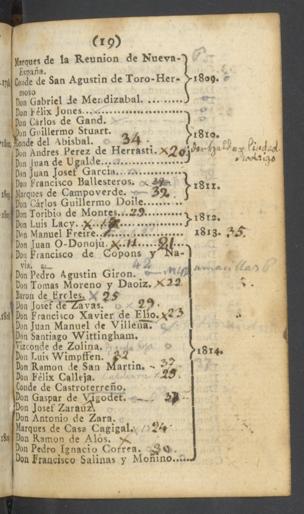 (19)
Marques de la Reunion de Nueva-
España.
Conde de San Agustin de Toro-Her-
moso
1809.
Don Gabriel de Mendizabal.
Don Félix Jones
Don Cárlos de Gand.
Don Guillermo Stuart.
Conde del Abisbal. 34
1810.
Don Andres Perez de Herrasti. x20
Don Juan de Ugalde
Don Juan Josef García
Don Francisco Ballesteros.
1811.
Marques de Campoverde. 32
Don Cárlos Guillermo Doile
Don Toribio de Montes 29
1812.
Don Luis Lacy.
Don Manuel Freire.
1813. 35.
Don Juan O-Donojú. x 11 21
Don Francisco de Copons y Na-
via.
Don Pedro Agustin Giron.
Don Tomas Moreno y Daoiz. x22
Baron de Eroles. x 25
Don Josef de Zayas. 29.
Don Francisco Xavier de Elío. x23
Don Juan Manuel de Villena.
Don Santiago Wittingham.
Vizconde de Zolina.
1814.
Don Luis Wimpffen. 32
Don Ramon de San Martin. 37
Don Félix Calleja. 29.
Conde de Castroterreño.
Don Gaspar de Vigodet.
Don Josef Zarauz.
Don Antonio de Zara.
Marques de Casa Cagigal. 24
Don Ramon de Alós. x
Don Pedro Ignacio Correa. 30
Don Francisco Salinas y Moñino